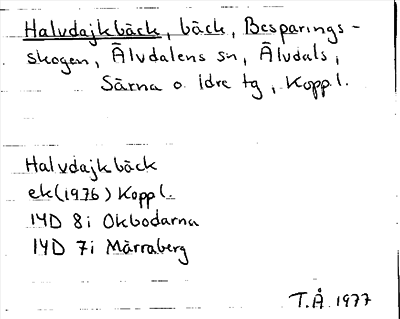 Halvdajkbäck, bäck, Besparings-
skogen, Älvdalens sn, Älvdals,
Särna o. Idre tg, Koppl.
Halvdajkbäck
ek(1976) Koppl.
14D 8i Okbodarna
14D 7i Märraberg
T.Å. 1977